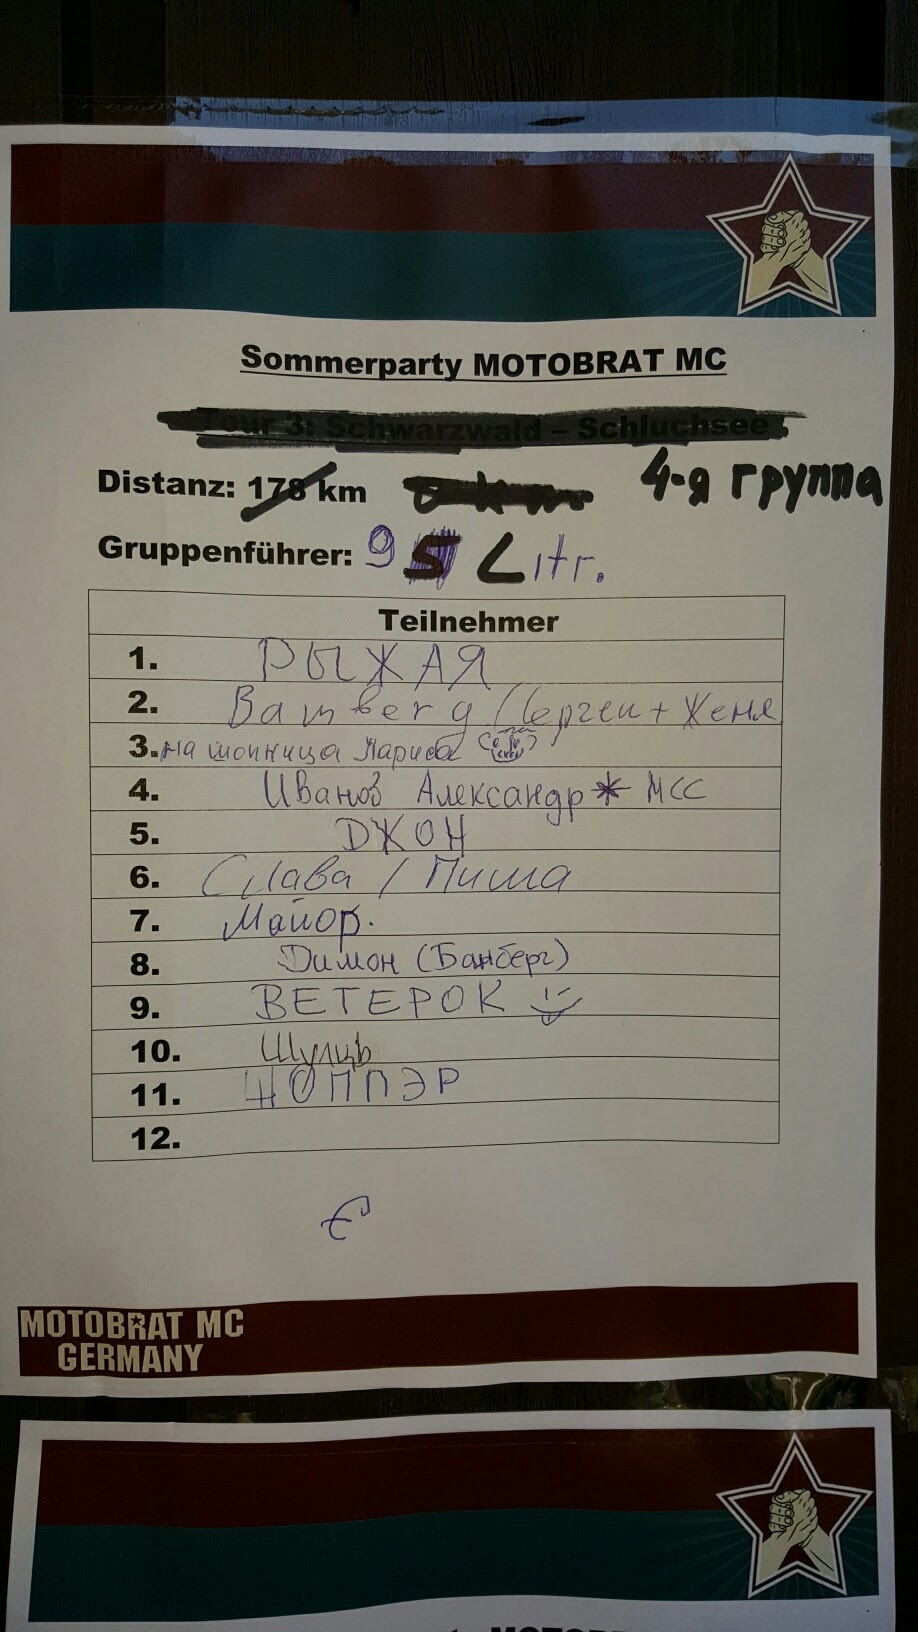 Sommerparty MOTOBRAT MC
Tour 3: Schwarzwald – Schluchsee
Distanz: 178 km 4-я группа
Gruppenführer: 95 Litr.
Teilnehmer
1. РЫЖАЯ
2. Bamberg / Сергеи + Женя
3. Лариса
4. Иванов Александр * МСС
5. ДЖОН
6. Слава / Миша
7. Майор.
8. Димон (Банберг)
9. ВЕТЕРОК
10. Шульць
11. ЧОППЭР
12.
€
MOTOBRAT MC
GERMANY